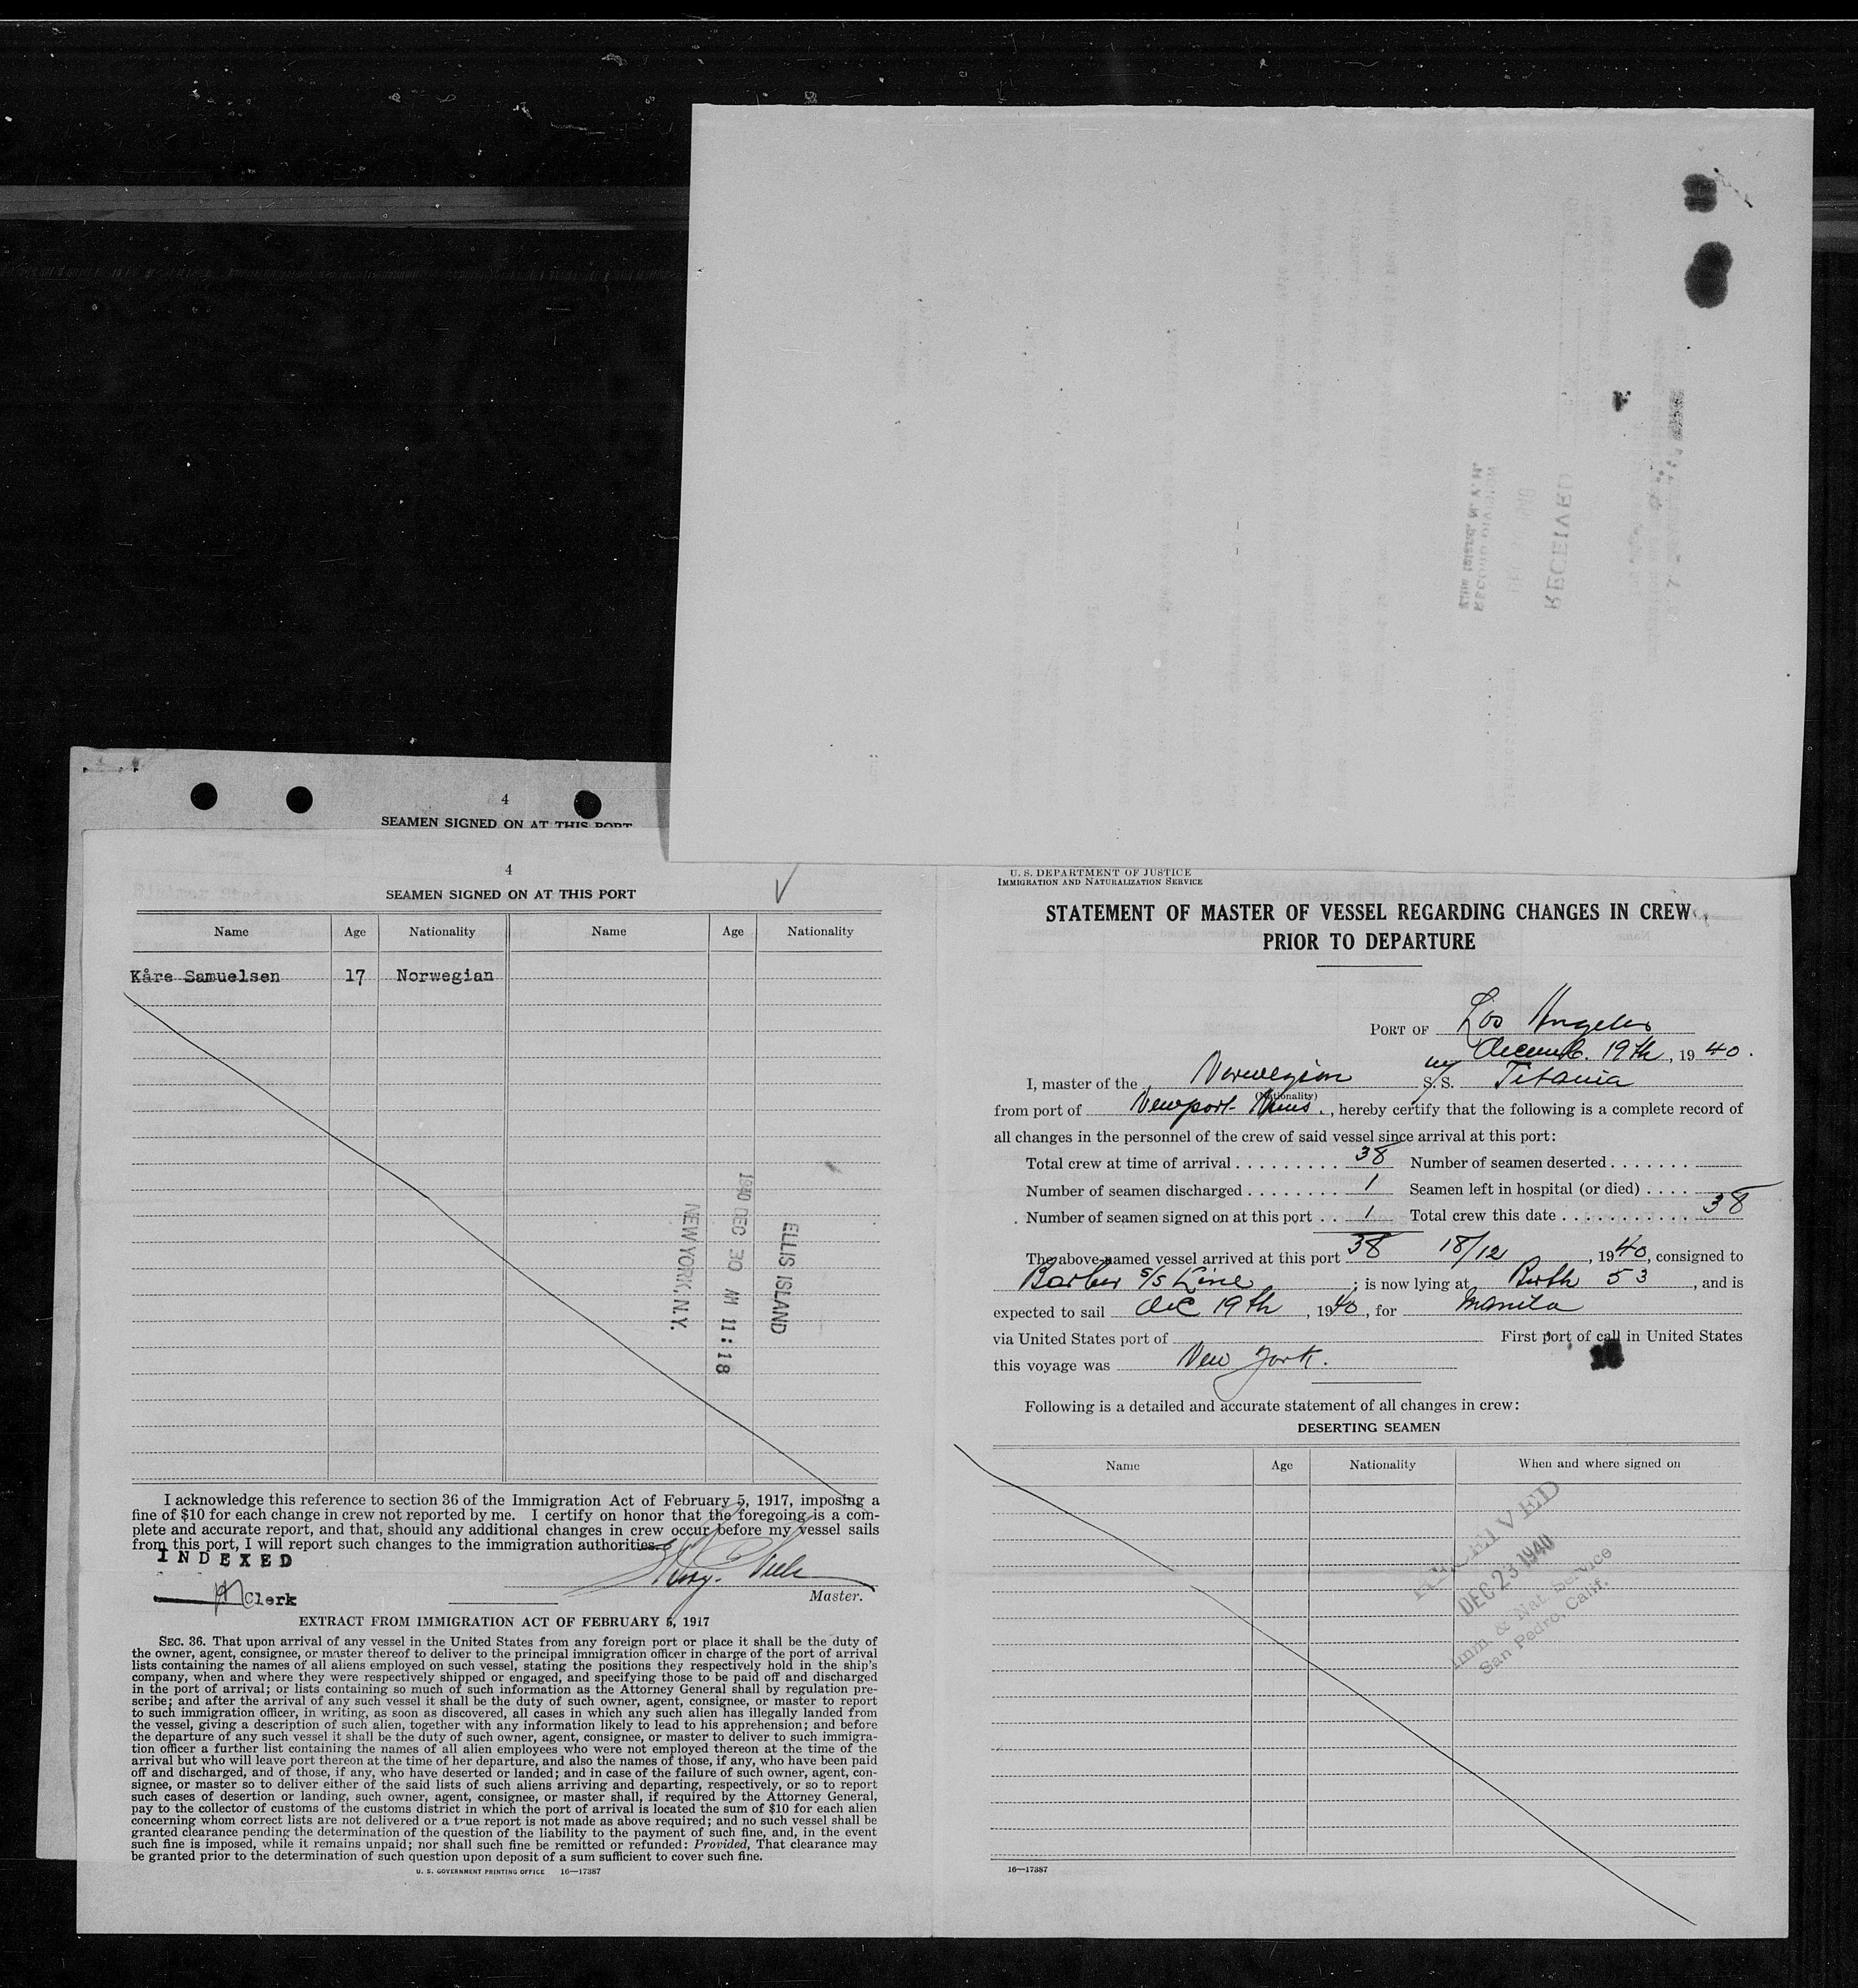 4
SEAMEN SIGNED ON AT THIS PORT
4
SEAMEN SIGNED ON AT THIS PORT
Name Age Nationality Name Age Nationality
Kåre Samuelsen 17 Norwegian
ELLIS ISLAND
1940 DEC 30 AM 11:18
NEW YORK, N.Y.
I acknowledge this reference to section 36 of the Immigration Act of February 5, 1917, imposing a
fine of $10 for each change in crew not reported by me. I certify on honor that the foregoing is a com-
plete and accurate report, and that, should any additional changes in crew occur before my vessel sails
from this port, I will report such changes to the immigration authorities.
INDEXED
Clerk
Master.
EXTRACT FROM IMMIGRATION ACT OF FEBRUARY 5, 1917
SEC. 36. That upon arrival of any vessel in the United States from any foreign port or place it shall be the duty of
the owner, agent, consignee, or master thereof to deliver to the principal immigration officer in charge of the port of arrival
lists containing the names of all aliens employed on such vessel, stating the positions they respectively hold in the ship's
company, when and where they were respectively shipped or engaged, and specifying those to be paid off and discharged
in the port of arrival; or lists containing so much of such information as the Attorney General shall by regulation pre-
scribe; and after the arrival of any such vessel it shall be the duty of such owner, agent, consignee, or master to report
to such immigration officer, in writing, as soon as discovered, all cases in which any such alien has illegally landed from
the vessel, giving a description of such alien, together with any information likely to lead to his apprehension; and before
the departure of any such vessel it shall be the duty of such owner, agent, consignee, or master to deliver to such immigra-
tion officer a further list containing the names of all alien employees who were not employed thereon at the time of the
arrival but who will leave port thereon at the time of her departure, and also the names of those, if any, who have been paid
off and discharged, and of those, if any, who have deserted or landed; and in case of the failure of such owner, agent, con-
signee, or master so to deliver either of the said lists of such aliens arriving and departing, respectively, or so to report
such cases of desertion or landing, such owner, agent, consignee, or master shall, if required by the Attorney General,
pay to the collector of customs of the customs district in which the port of arrival is located the sum of $10 for each alien
concerning whom correct lists are not delivered or a true report is not made as above required; and no such vessel shall be
granted clearance pending the determination of the question of the liability to the payment of such fine, and, in the event
such fine is imposed, while it remains unpaid; nor shall such fine be remitted or refunded: Provided, That clearance may
be granted prior to the determination of such question upon deposit of a sum sufficient to cover such fine.
U. S. GOVERNMENT PRINTING OFFICE 16—17387
RECEIVED
RECORD DIVISION
Ellis Island, N. Y. H.
U. S. DEPARTMENT OF JUSTICE
IMMIGRATION AND NATURALIZATION SERVICE
STATEMENT OF MASTER OF VESSEL REGARDING CHANGES IN CREW
PRIOR TO DEPARTURE
PORT OF Los Angeles
Decemb. 19th, 1940.
I, master of the Norwegian m/s S. S. Titania
(Nationality)
from port of Newport News, hereby certify that the following is a complete record of
all changes in the personnel of the crew of said vessel since arrival at this port:
Total crew at time of arrival 38 Number of seamen deserted
Number of seamen discharged 1 Seamen left in hospital (or died)
Number of seamen signed on at this port 1 Total crew this date 38
38
The above-named vessel arrived at this port 18/12, 1940, consigned to
Barber S/S Line; is now lying at Berth 53, and is
expected to sail Dec 19th, 1940, for Manila
via United States port of First port of call in United States
this voyage was New York.
Following is a detailed and accurate statement of all changes in crew:
DESERTING SEAMEN
Name Age Nationality When and where signed on
RECEIVED
DEC 23 1940
Imm. & Nat. Service
San Pedro, Calif.
16—17387